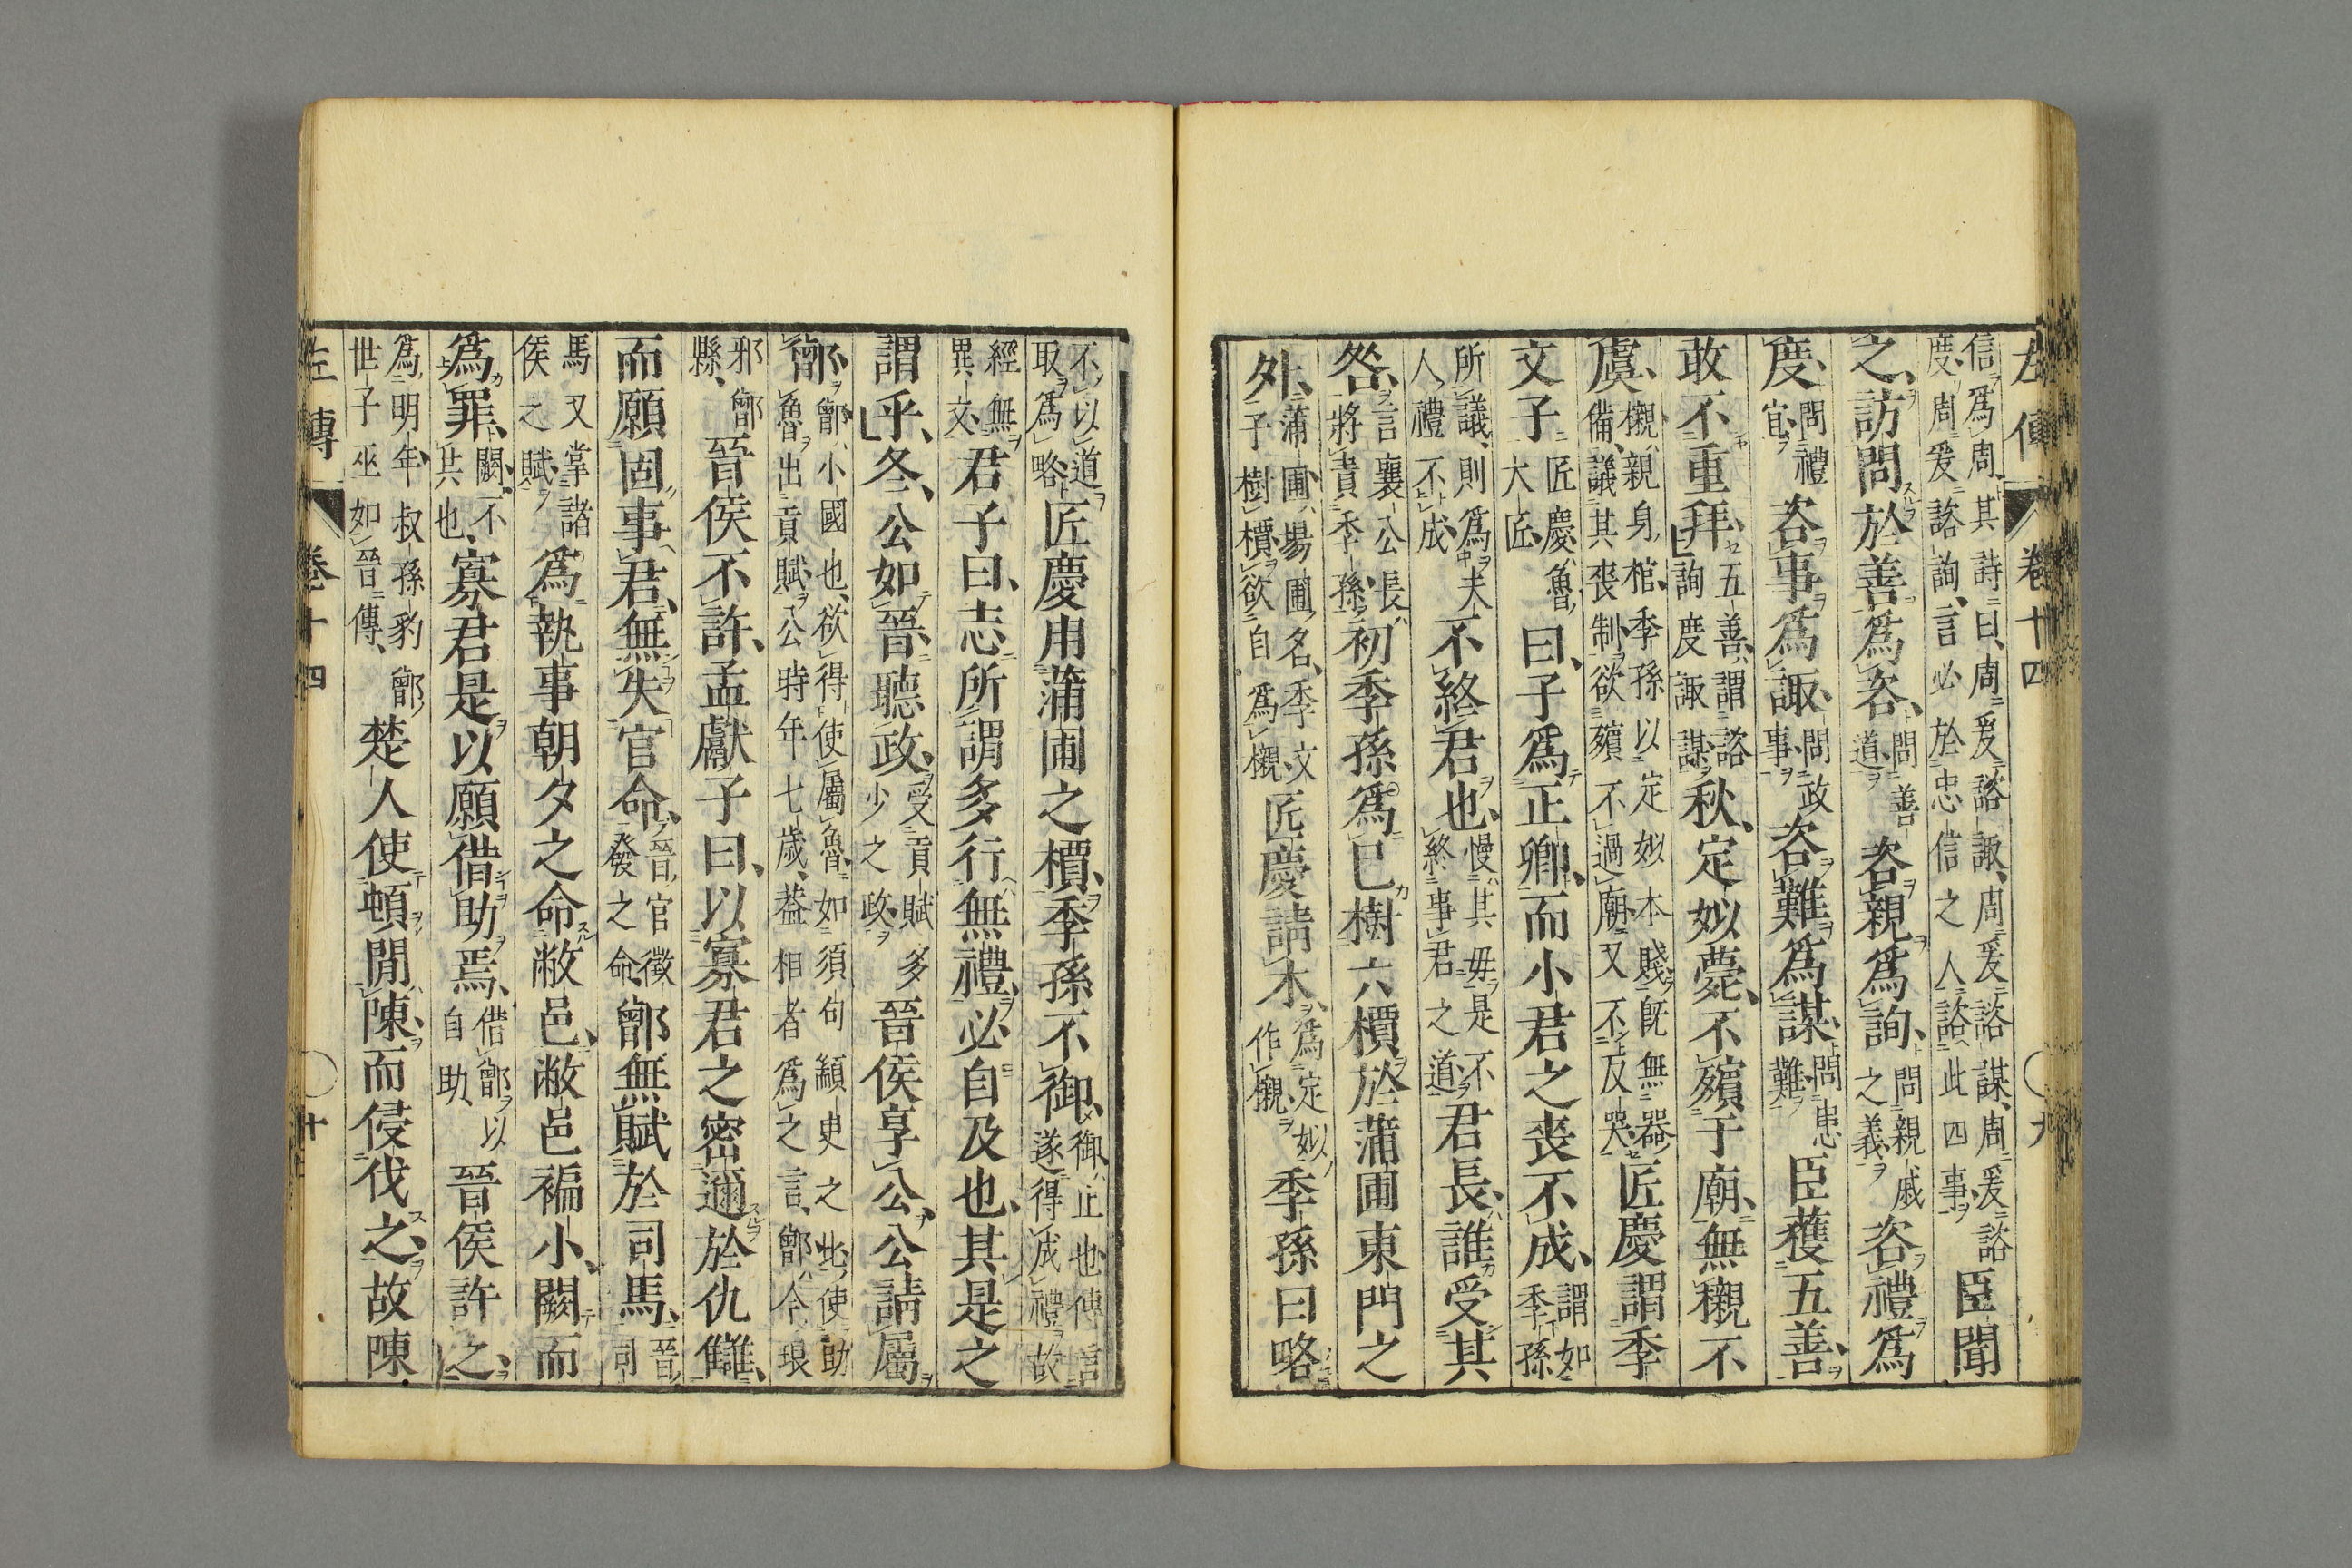 左傳 卷十四 九
信爲周其詩曰周爰諮諏周爰諮謀周爰諮度周爰諮詢言必於忠信之人諮此四事臣聞
之、訪問於善爲咨、問善道咨親爲詢、問親戚之義咨禮爲
度、問禮宜咨事爲諏、問政事咨難爲謀、問患難臣獲五善、
敢不重拜、五善謂諮詢度諏謀秋、定姒薨、不殯于廟、無櫬、不
虞、櫬親身棺季孫以定姒本賤既無器備議其喪制欲殯不過廟又不反哭匠慶謂季
文子匠慶魯大匠曰、子爲正卿、而小君之喪不成、謂如季孫
所議則爲夫人禮不成不終君也、慢其母是不終事君之道君長、誰受其
咎、言襄公長將責季孫初季孫爲己樹六檟於蒲圃東門之
外、蒲圃場圃名季文子樹檟欲自爲櫬匠慶請木、爲定姒作櫬季孫曰略
不以道取爲略匠慶用蒲圃之檟、季孫不御、御止也傳言遂得成禮故
經無異文君子曰、志所謂多行無禮、必自及也、其是之
謂乎、冬、公如晉、聽政、受貢賦多少之政晉侯享公、公請屬
鄫、鄫小國也欲得使屬魯如須句顓臾之比使助魯出貢賦公時年七歳蓋相者爲之言鄫今琅
邪鄫縣晉侯不許、孟獻子曰、以寡君之密邇於仇讎、
而願固事君、無失官命、晉官徵發之命鄫無賦於司馬、晉司
馬又掌諸侯之賦爲執事朝夕之命敝邑、敝邑褊小、闕而
爲罪、闕不共也寡君是以願借助焉、借鄫以自助晉侯許之、
爲明年叔孫豹鄫世子巫如晉傳楚人使頓間陳、而侵伐之、故陳
左傳 卷十四 十